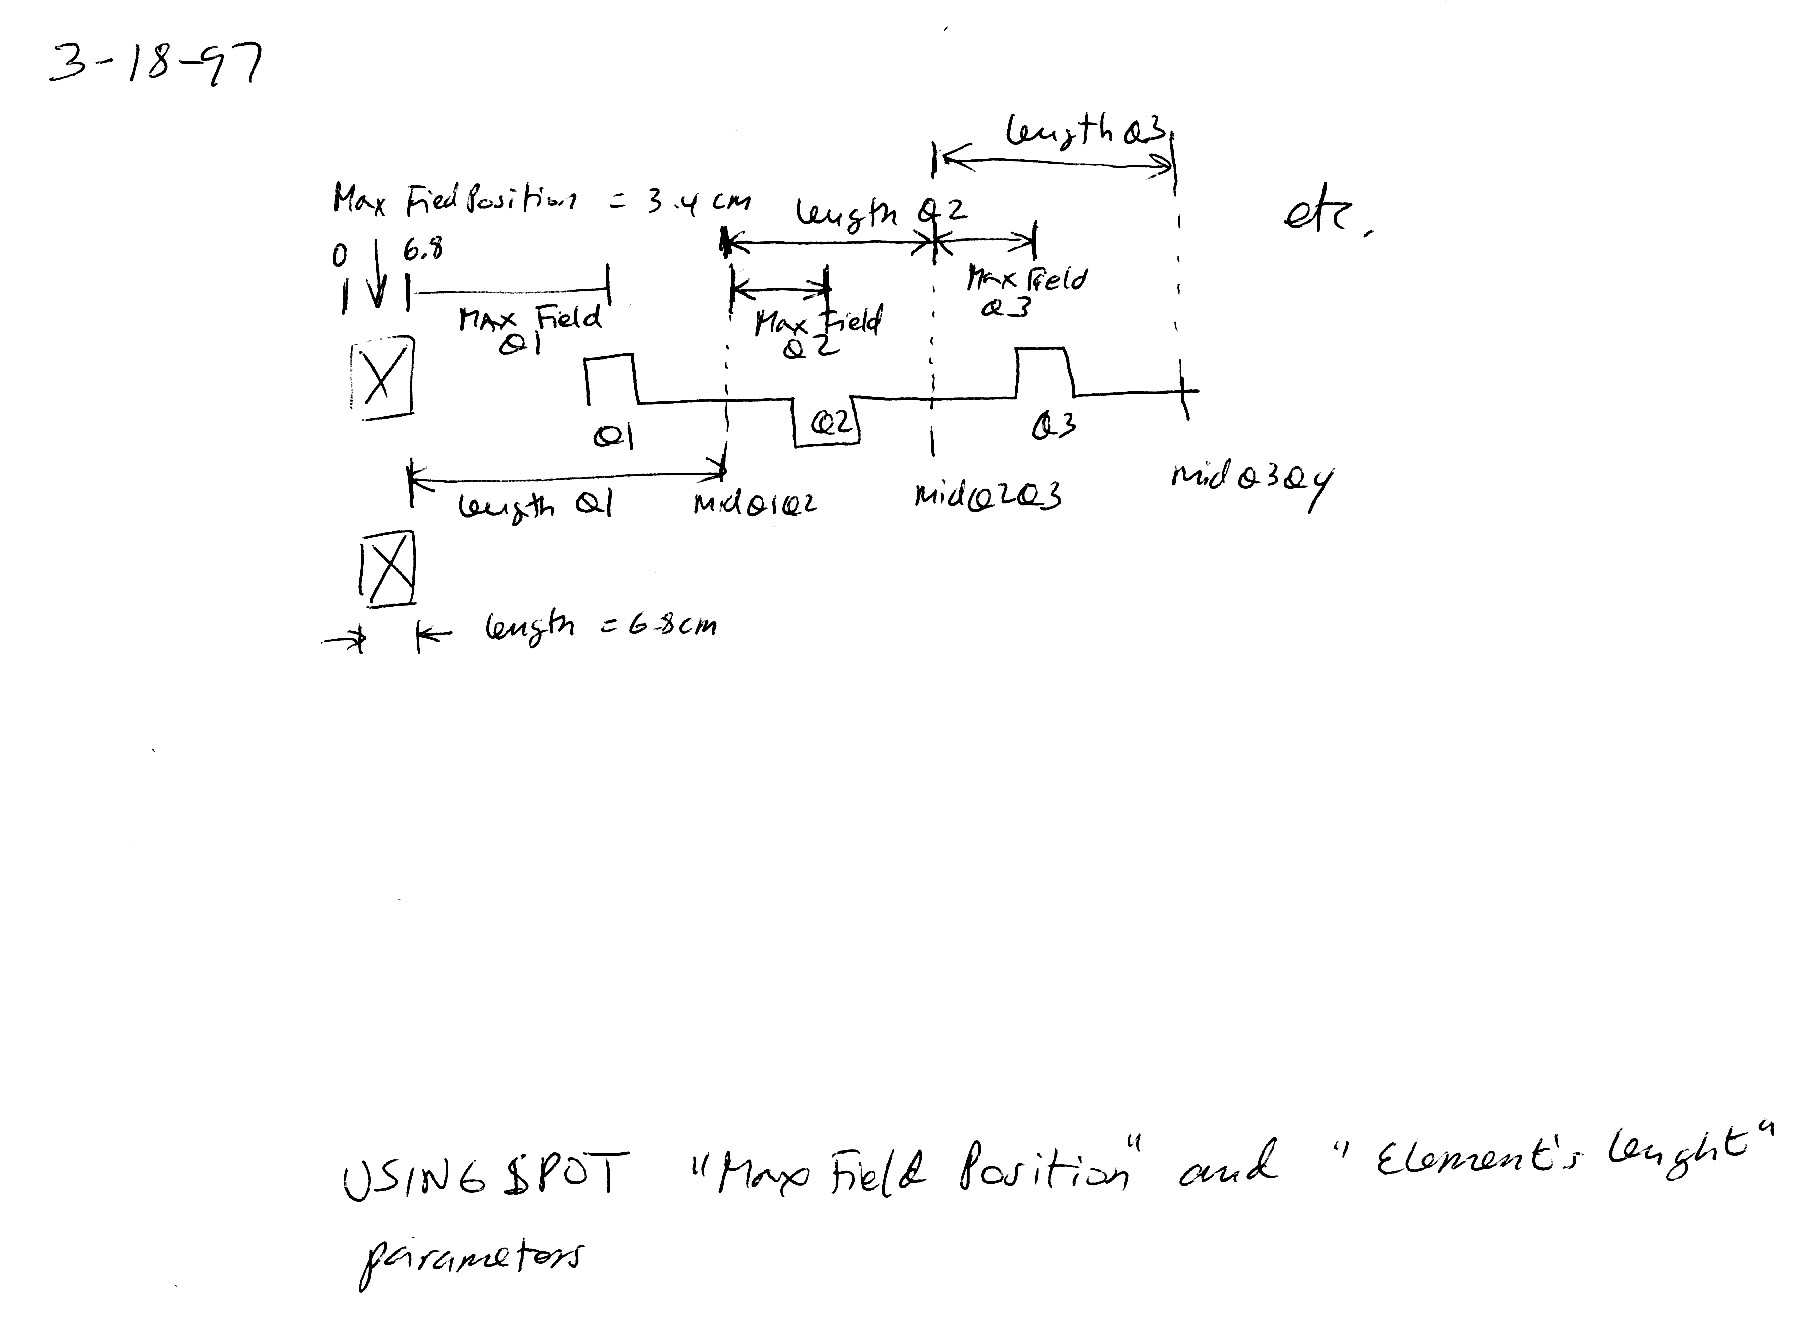 3-18-97
length Q3
Max Fied Position = 3.4 cm
length Q2
etc.
0 6.8
Max Field
Q3
MAX Field
Q1
Max Field
Q2
Q1
Q2
Q3
length Q1
midQ1Q2
midQ2Q3
mid Q3Q4
length = 6.8cm
USING SPOT "Max Field Position" and "Element's lenght"
parameters